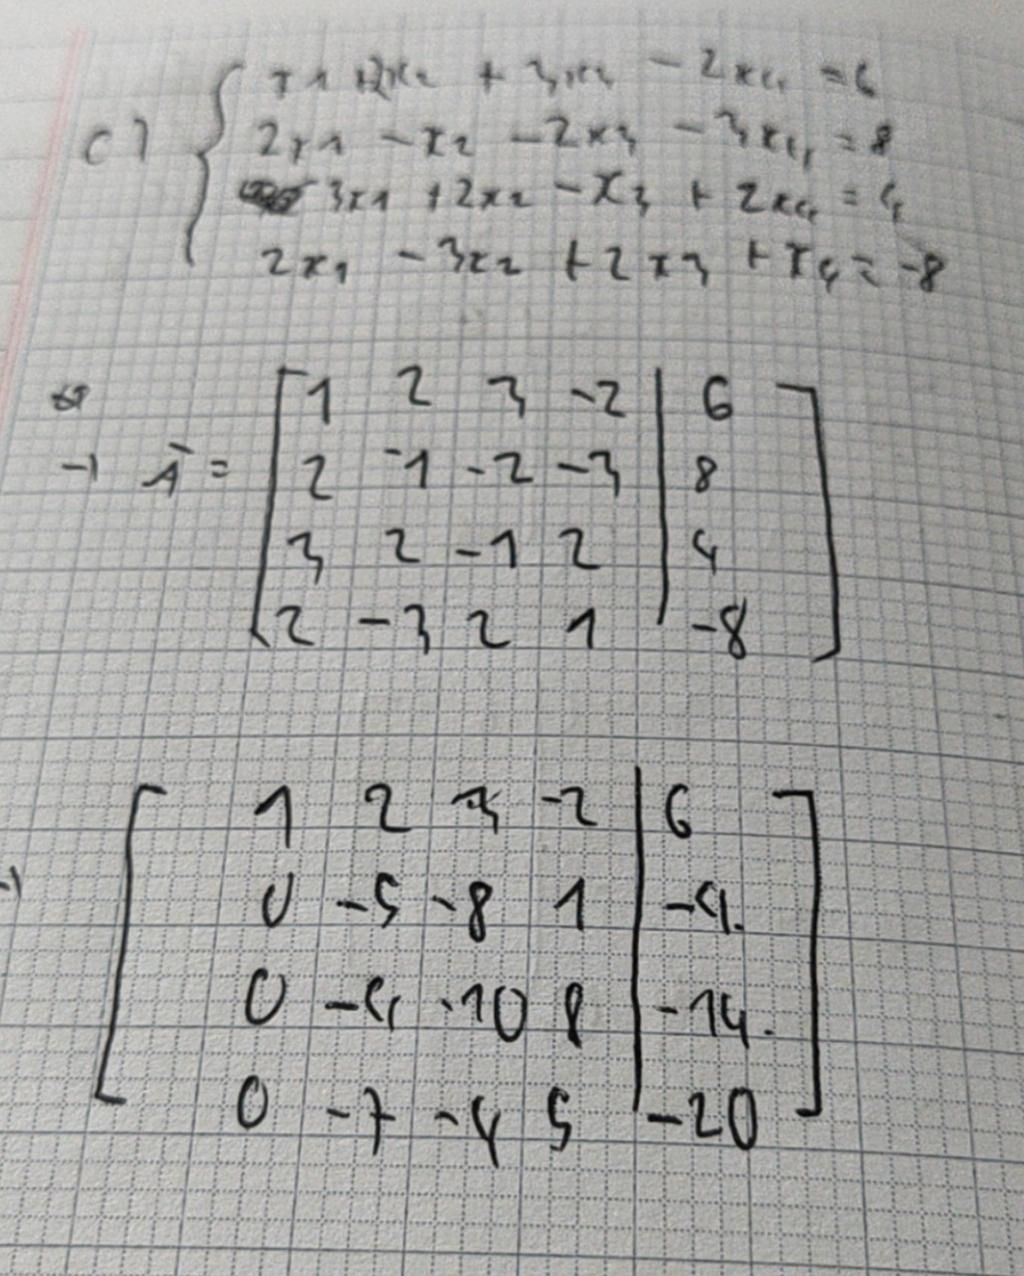 c) { x1 + 2x2 + 3x3 - 2x4 = 6
2x1 - x2 - 2x3 - 3x4 = 8
3x1 + 2x2 - x3 + 2x4 = 4
2x1 - 3x2 + 2x3 + x4 = -8
→ Ā = [ 1 2 3 -2 | 6 ]
2 -1 -2 -3 | 8
3 2 -1 2 | 4
2 -3 2 1 | -8
[ 1 2 3 -2 | 6 ]
→ 0 -5 -8 1 | -4.
0 -4 -10 8 | -14.
0 -7 -4 5 | -20